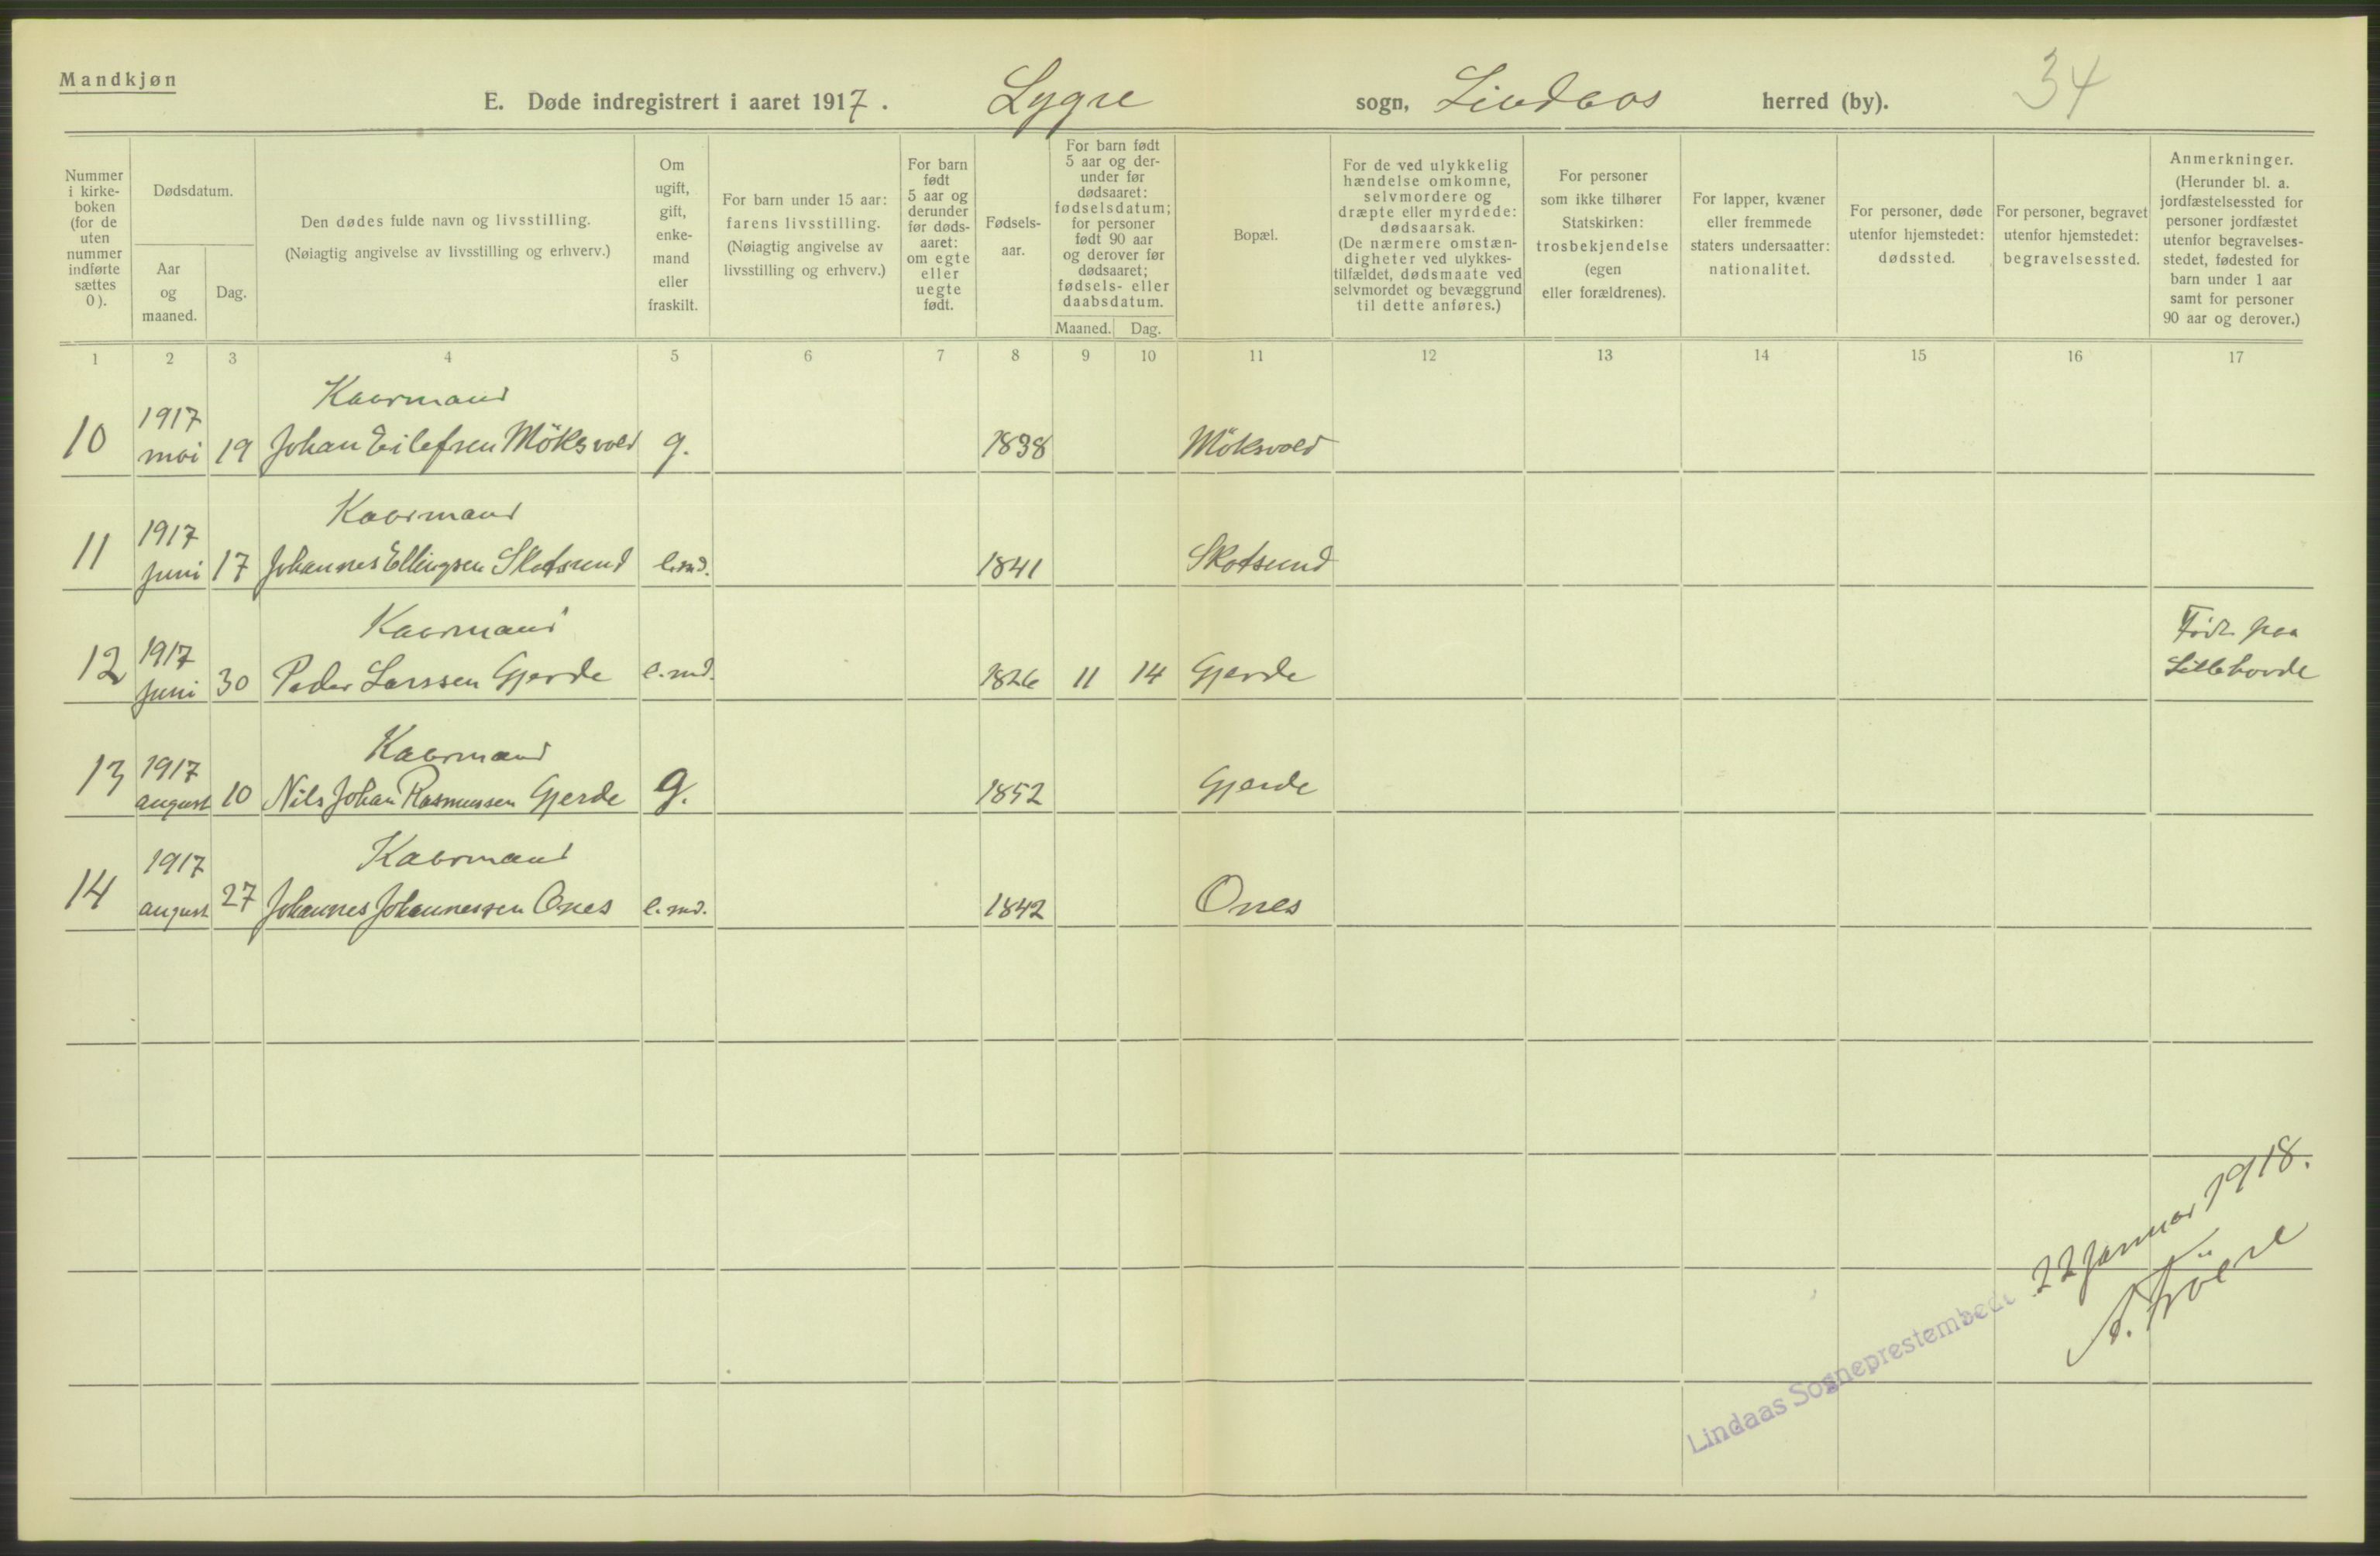 Mandkjøn
E. Døde indregistrert i aaret 1917. Lygre sogn, Lindaas herred (by). 34
Nummer i kirke- boken (for de uten nummer indførte sættes 0).
Dødsdatum.
Aar og maaned.
Dag.
Den dødes fulde navn og livsstilling.
(Nøiagtig angivelse av livsstilling og erhverv.)
Om ugift, gift, enke- mand eller fraskilt.
For barn under 15 aar: farens livsstilling. (Nøiagtig angivelse av livsstilling og erhverv.)
For barn født 5 aar og derunder før døds- aaret: om egte eller uegte født.
Fødsels- aar.
For barn født 5 aar og der- under før dødsaaret: fødselsdatum; for personer født 90 aar og derover før dødsaaret; fødsels- eller daabsdatum.
Maaned. Dag.
Bopæl.
For de ved ulykkelig hændelse omkomne, selvmordere og dræpte eller myrdede: dødsaarsak. (De nærmere omstæn- digheter ved ulykkes- tilfældet, dødsmaate ved selvmordet og bevæggrund til dette anføres.)
For personer som ikke tilhører Statskirken: trosbekjendelse (egen eller forældrenes).
For lapper, kvæner eller fremmede staters undersaatter: nationalitet.
For personer, døde utenfor hjemstedet: dødssted.
For personer, begravet utenfor hjemstedet: begravelsessted.
Anmerkninger. (Herunder bl. a. jordfæstelsessted for personer jordfæstet utenfor begravelses- stedet, fødested for barn under 1 aar samt for personer 90 aar og derover.)
1 2 3 4 5 6 7 8 9 10 11 12 13 14 15 16 17
Kaarmand
10 1917 mai 19 Johan Eilefsen Möksvold g. 1838 Möksvold
Kaarmand
11 1917 juni 17 Johannes Ellingsen Skotsund e.md. 1841 Skotsund
Kaarmand
12 1917 juni 30 Peder Larssen Gjerde e.md. 1826 11 14 Gjerde Född paa Lillehovde
Kaarmand
13 1917 august 10 Nils Johan Rasmussen Gjerde g. 1852 Gjerde
Kaarmand
14 1917 august 27 Johannes Johannessen Ones e.md. 1842 Ones
Lindaas Sogneprestembede 22 januar 1918.